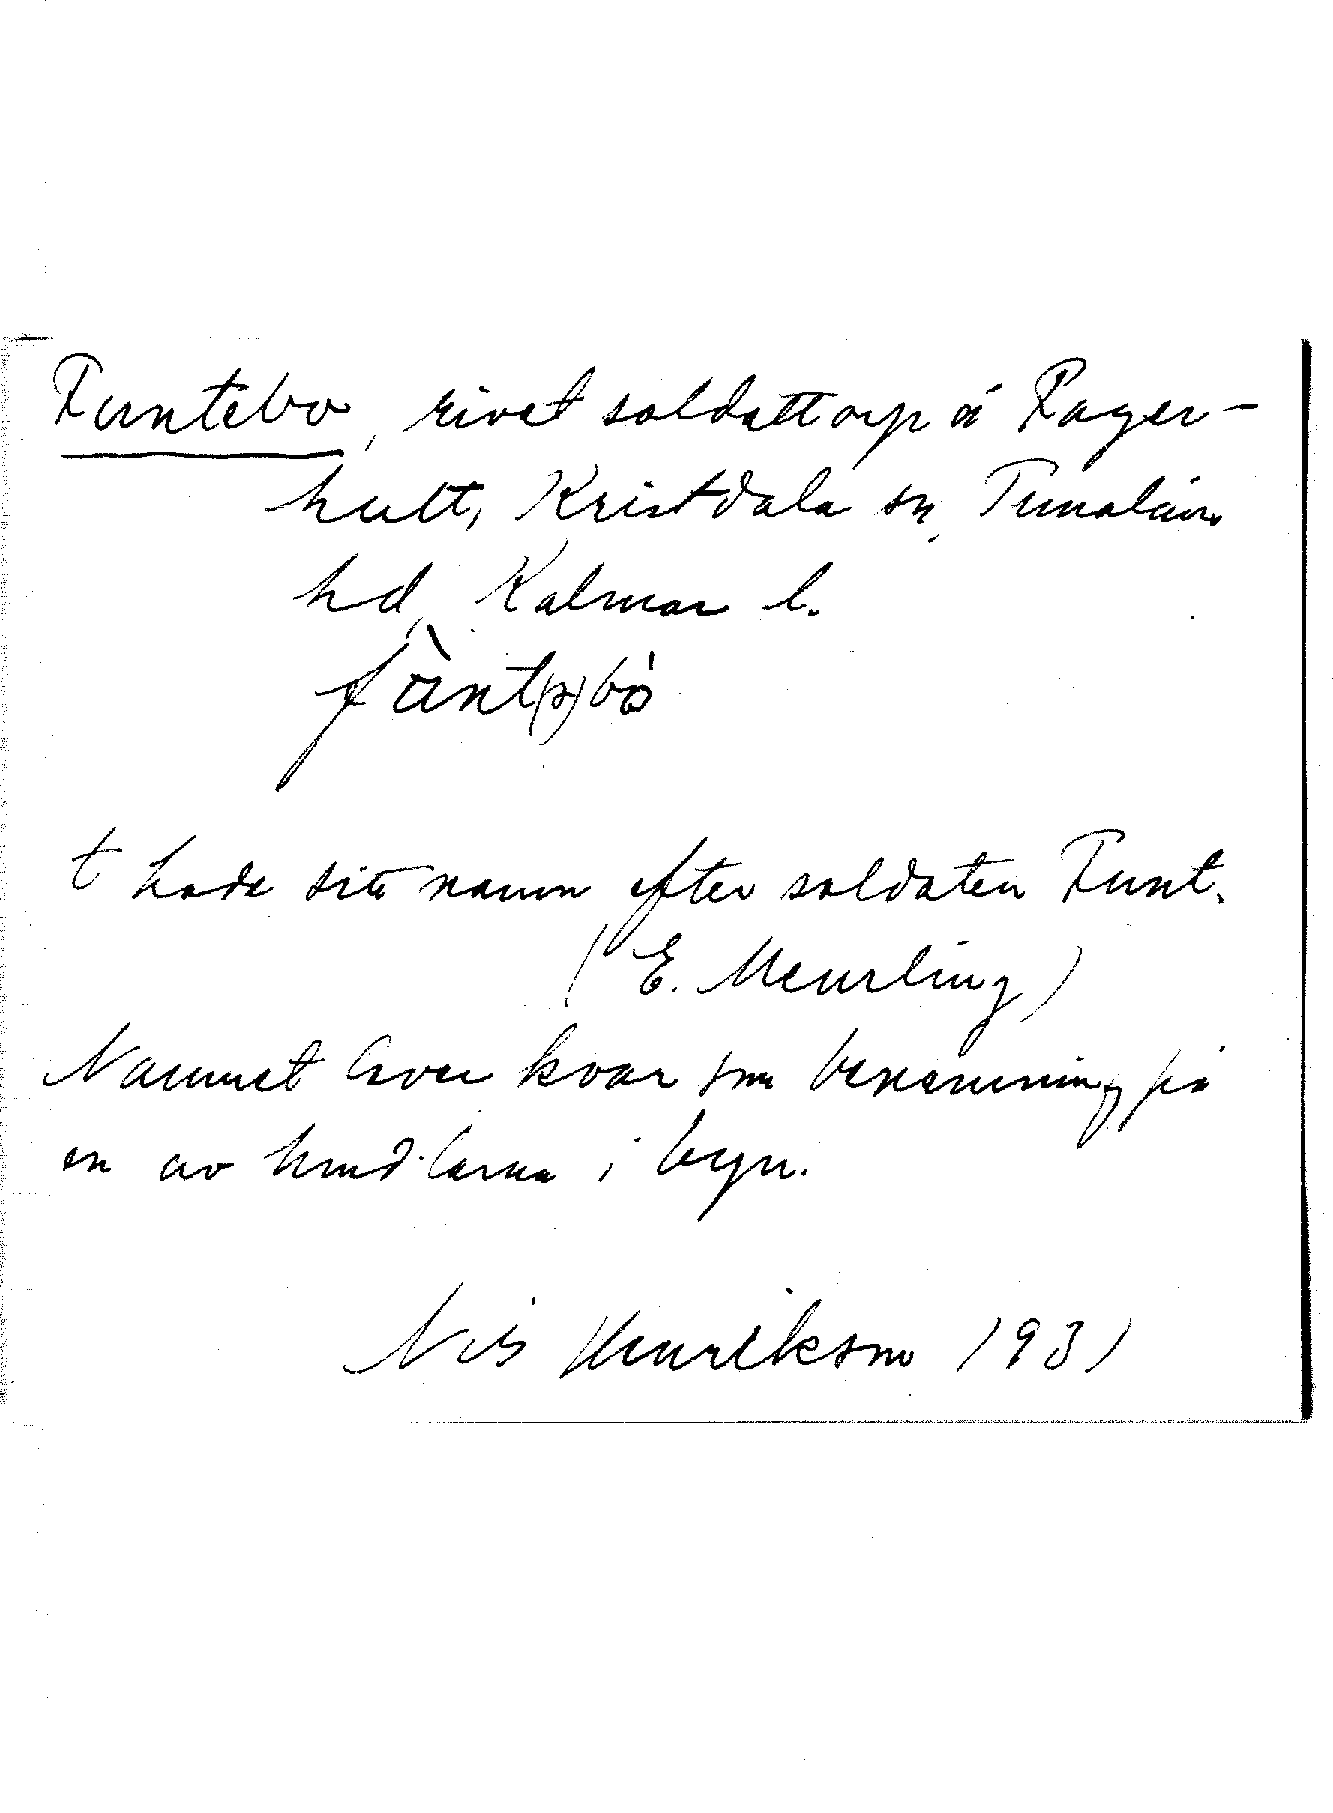 Funtebo, rivet soldattorp å Fager-
hult, Kristdala sn, Tunaläns
hd, Kalmar l.
t hade sitt namn efter soldaten Funt.
(E. Meurling)
Namnet lever kvar som benämning på
en av lindorna i byn.
Nils Henriksson 1931